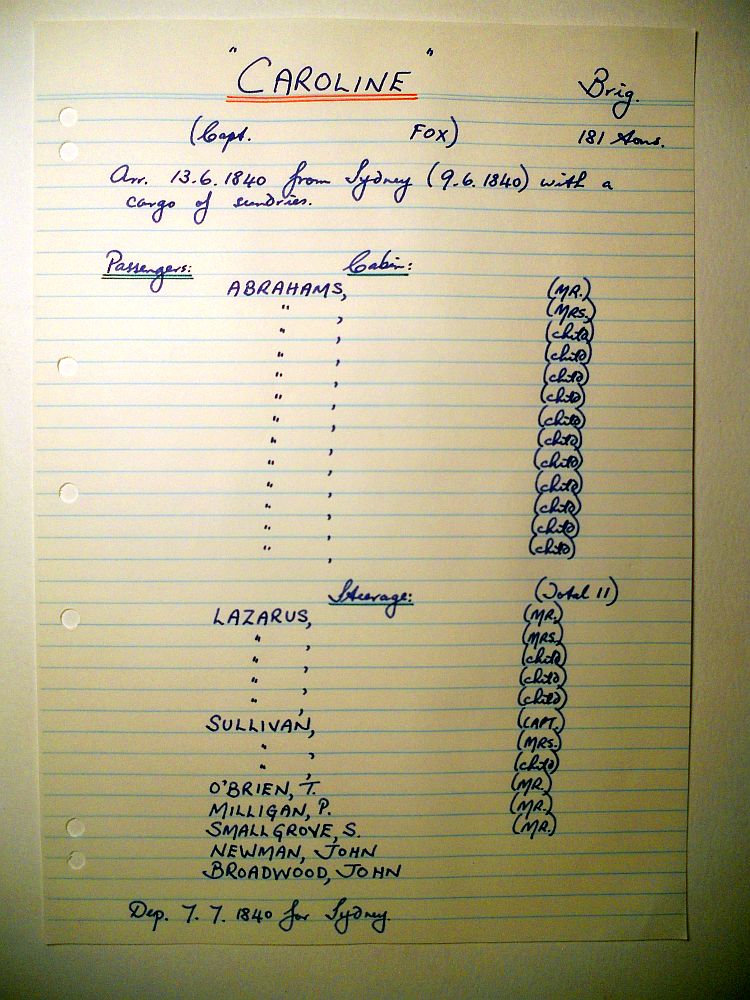 "CAROLINE" Brig.
(Capt. FOX) 181 tons.
Arr. 13.6.1840 from Sydney (9.6.1840) with a
cargo of sundries.
Passengers: Cabin:
ABRAHAMS, (MR.)
" , (MRS.)
" , (child)
" , (child)
" , (child)
" , (child)
" , (child)
" , (child)
" , (child)
" , (child)
" , (child)
" , (child)
" , (child)
Steerage: (Total 11)
LAZARUS, (MR.)
" , (MRS.)
" , (child)
" , (child)
" , (child)
SULLIVAN, (CAPT.)
" , (MRS.)
" , (child)
O'BRIEN, T. (MR.)
MILLIGAN, P. (MR.)
SMALLGROVE, S. (MR.)
NEWMAN, JOHN
BROADWOOD, JOHN
Dep. 7.7.1840 for Sydney.